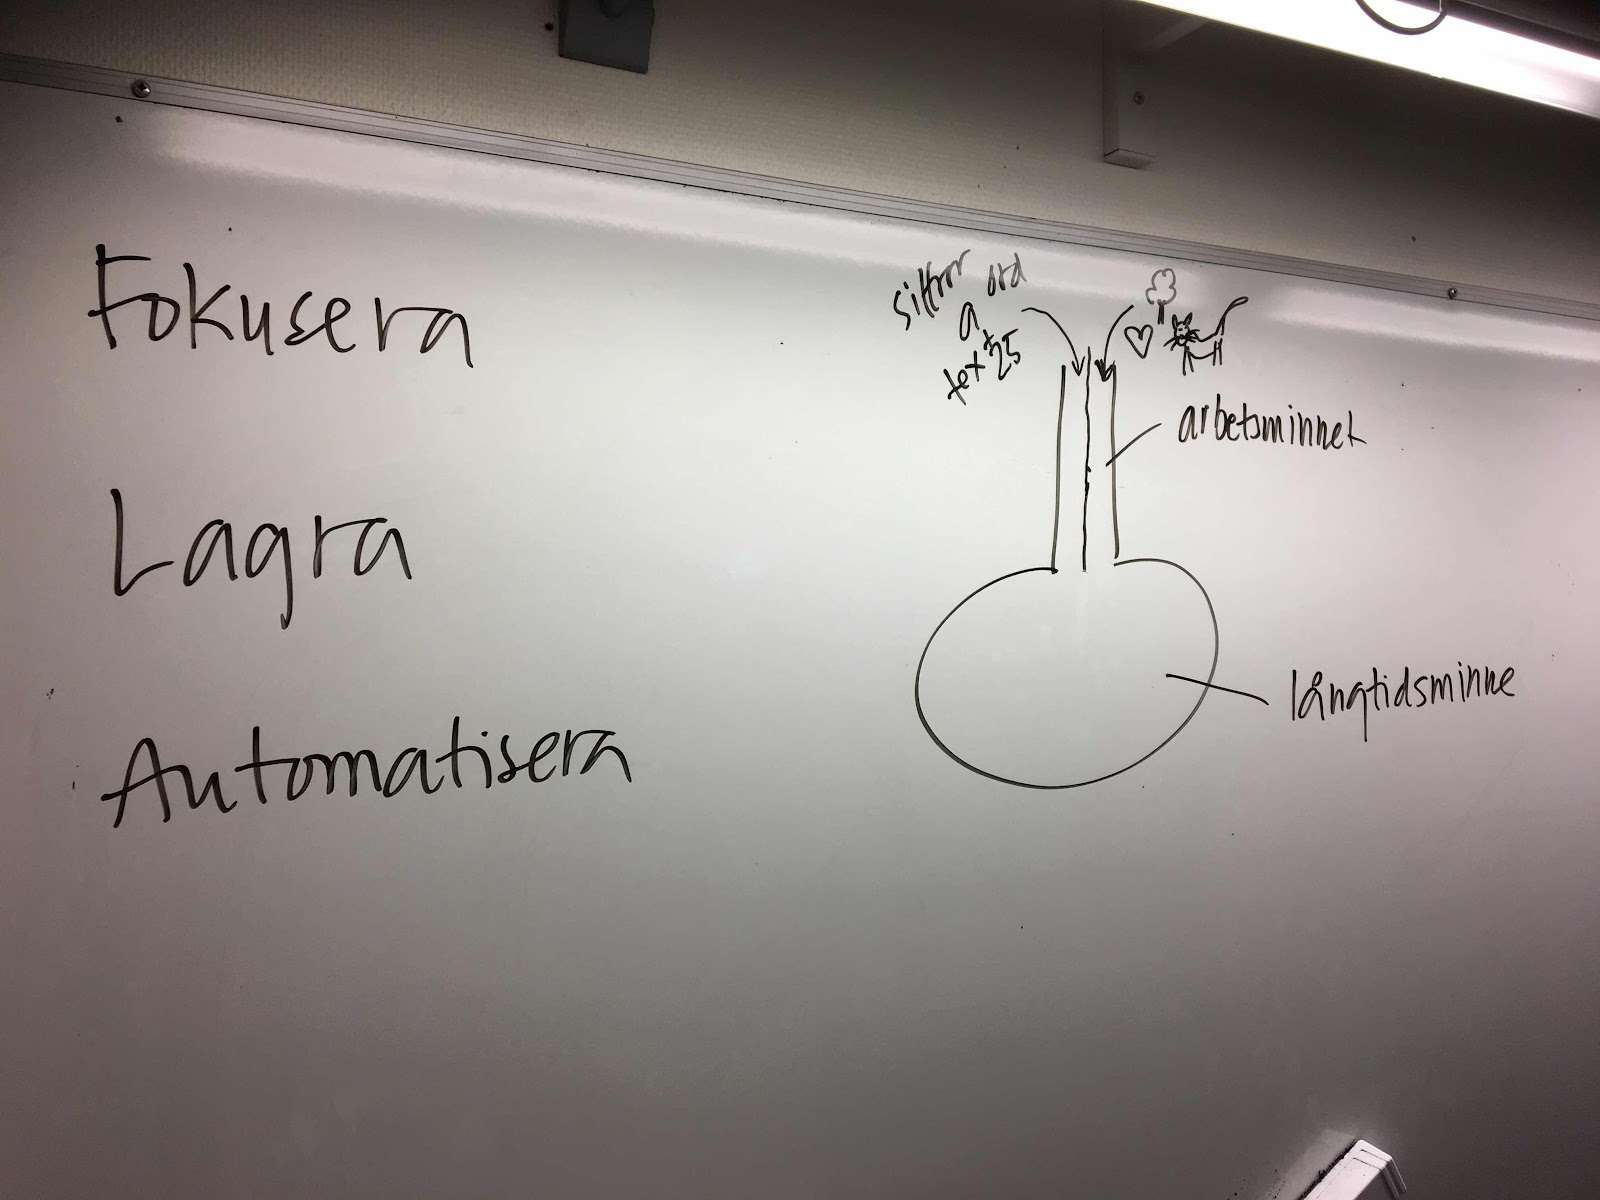 Fokusera
Lagra
Automatisera
siffror ord
a
text 25
arbetsminnet
långtidsminne